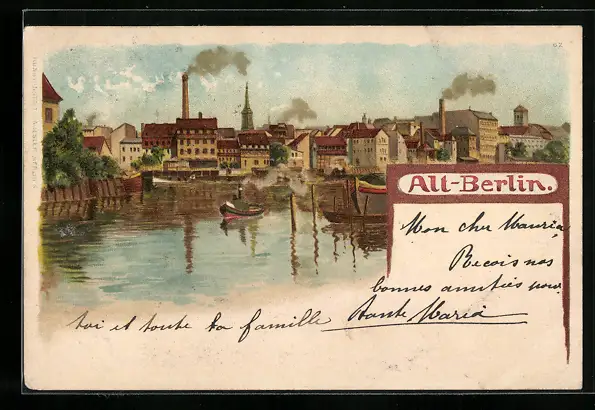 Alt-Berlin.
Mon cher Mauric
Recois nos
bonnes amitiés pour
toi et toute ta famille Tante Maria